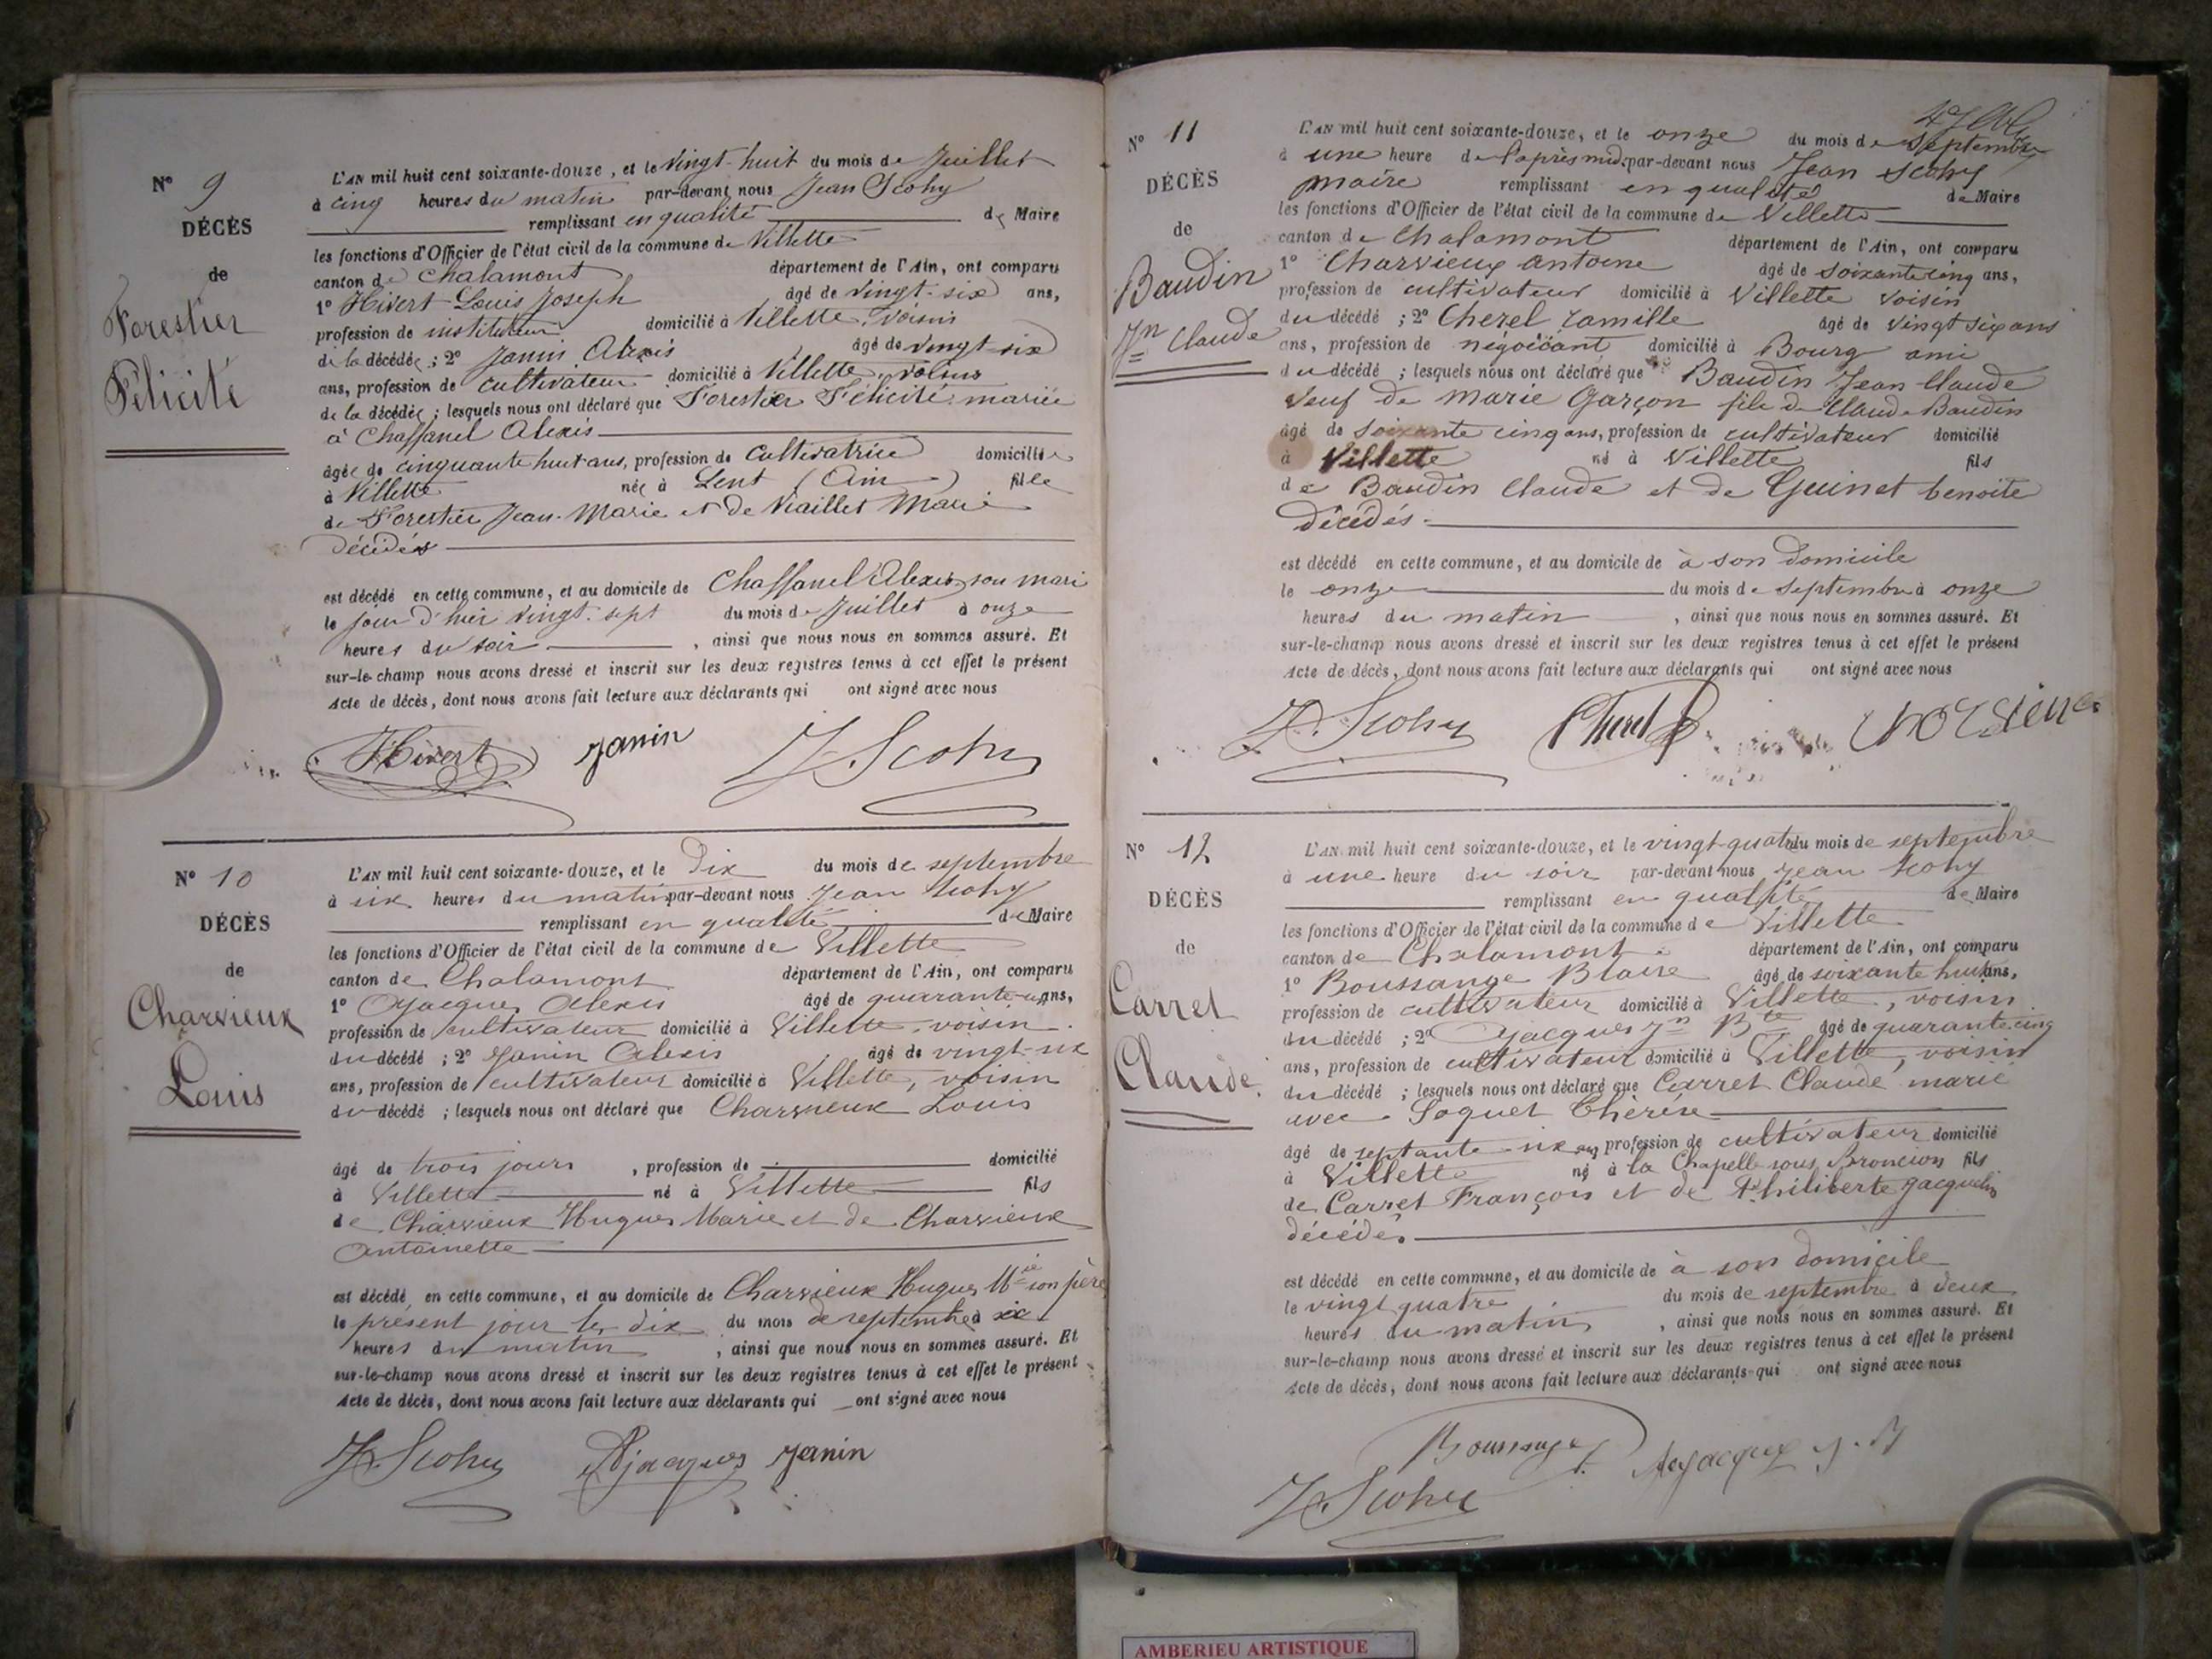 N° 9
DÉCÈS
de
Forestier
Félicité
L'AN mil huit cent soixante-douze, et le vingt-huit du mois de Juillet
à cinq heures du matin par-devant nous Jean Scohy
remplissant en qualité de Maire
les fonctions d'Officier de l'état civil de la commune de Villette
canton de Chalamont département de l'Ain, ont comparu
1° Hivert Louis Joseph âgé de vingt-six ans,
profession de instituteur domicilié à Villette, voisin
de la décédée ; 2° Janin Alexis âgé de vingt-six
ans, profession de cultivateur domicilié à Villette, voisins
de la décédée ; lesquels nous ont déclaré que Forestier Félicité mariée
à Chaffanel Alexis
âgée de cinquante huit ans, profession de cultivatrice domiciliée
à Villette née à Lent (Ain) fille
de Forestier Jean-Marie et de Viaillet Marie
décédés
est décédé en cette commune, et au domicile de Chaffanel Alexis son mari
le jour d'hier vingt-sept du mois de Juillet à onze
heures du soir, ainsi que nous nous en sommes assuré. Et
sur-le-champ nous avons dressé et inscrit sur les deux registres tenus à cet effet le présent
Acte de décès, dont nous avons fait lecture aux déclarants qui ont signé avec nous
Hivert Janin J. Scohy
N° 10
DÉCÈS
de
Charvieux
Louis
L'AN mil huit cent soixante-douze, et le Dix du mois de septembre
à six heures du matin par-devant nous Jean Scohy
remplissant en qualité de Maire
les fonctions d'Officier de l'état civil de la commune de Villette
canton de Chalamont département de l'Ain, ont comparu
1° Ayacques Alexis âgé de quarante-un ans,
profession de cultivateur domicilié à Villette, voisin
du décédé ; 2° Janin Alexis âgé de vingt-six
ans, profession de cultivateur domicilié à Villette, voisin
du décédé ; lesquels nous ont déclaré que Charvieux Louis
âgé de trois jours, profession de domicilié
à Villette né à Villette fils
de Charvieux Hugues Marie et de Charvieux
Antoinette
est décédé en cette commune, et au domicile de Charvieux Hugues Mie son père
le présent jour le dix du mois de septembre à six
heures du matin, ainsi que nous nous en sommes assuré. Et
sur-le-champ nous avons dressé et inscrit sur les deux registres tenus à cet effet le présent
Acte de décès, dont nous avons fait lecture aux déclarants qui ont signé avec nous
J. Scohy Ajacques Janin
N° 11
DÉCÈS
de
Baudin
Jn Claude
L'AN mil huit cent soixante-douze, et le onze du mois de Septembre
à une heure de l'après midi par-devant nous Jean Scohy
maire remplissant en qualité de Maire
les fonctions d'Officier de l'état civil de la commune de Villette
canton de Chalamont département de l'Ain, ont comparu
1° Charvieux antoine âgé de soixante cinq ans,
profession de cultivateur domicilié à Villette voisin
du décédé ; 2° Cherel Camille âgé de vingt six ans
ans, profession de négociant domicilié à Bourg ami
du décédé ; lesquels nous ont déclaré que Baudin Jean-Claude
Veuf de Marie Garçon fils de Claude Baudin
âgé de soixante cinq ans, profession de cultivateur domicilié
à Villette né à Villette fils
de Baudin Claude et de Guinet benoite
décédés
est décédé en cette commune, et au domicile de à son domicile
le onze du mois de septembre à onze
heures du matin, ainsi que nous nous en sommes assuré. Et
sur-le-champ nous avons dressé et inscrit sur les deux registres tenus à cet effet le présent
Acte de décès, dont nous avons fait lecture aux déclarants qui ont signé avec nous
J. Scohy Cherel
N° 12
DÉCÈS
de
Carret
Claude
L'AN mil huit cent soixante-douze, et le vingt-quatre du mois de septembre
à une heure du soir par-devant nous Jean Scohy
remplissant en qualité de Maire
les fonctions d'Officier de l'état civil de la commune de Villette
canton de Chalamont département de l'Ain, ont comparu
1° Boussange Blaise âgé de soixante huit ans,
profession de cultivateur domicilié à Villette, voisin
du décédé ; 2° Ayacques Jn Bte âgé de quarante cinq
ans, profession de cultivateur domicilié à Villette, voisin
du décédé ; lesquels nous ont déclaré que Carret Claude marié
avec Soquet Thérèse
âgé de septante-six ans profession de cultivateur domicilié
à Villette né à la Chapelle sous Brancion fils
de Carret François et de Philiberte Jacquelin
décédés
est décédé en cette commune, et au domicile de à son domicile
le vingt quatre du mois de septembre à deux
heures du matin, ainsi que nous nous en sommes assuré. Et
sur-le-champ nous avons dressé et inscrit sur les deux registres tenus à cet effet le présent
Acte de décès, dont nous avons fait lecture aux déclarants qui ont signé avec nous
Boussange Ayacques J. B
J. Scohy
AMBERIEU ARTISTIQUE